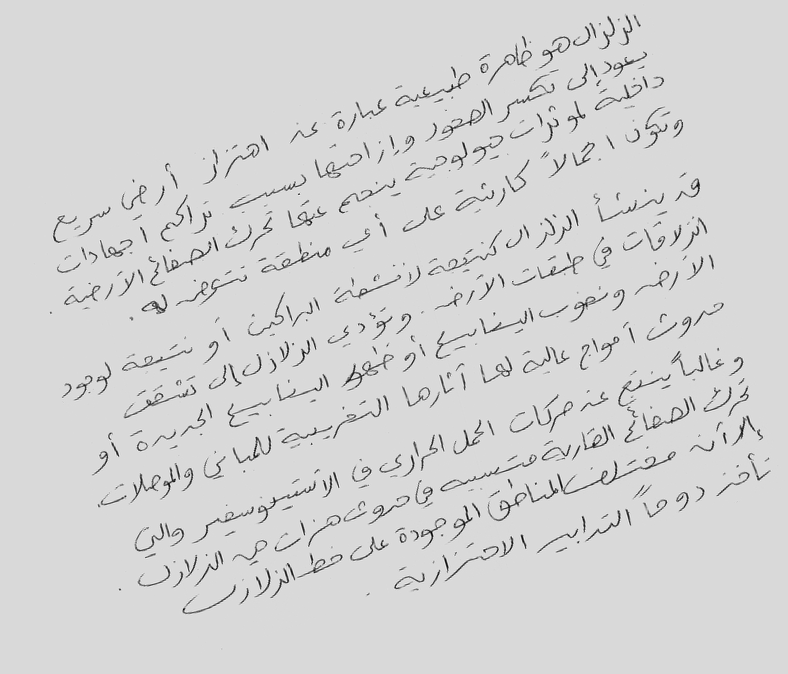 الزلزال هو ظاهرة طبيعية عبارة عن اهتزاز أرضي سريع
يعود إلى تكسر الصخور وإزاحتها بسبب تراكم اجهادات
داخلية لمؤثرات جيولوجية ينجم عنها تحرك الصفائح الأرضية .
وتكون اجمالاً كارثية على أي منطقة تتعرض له .
قد ينشأ الزلزال كنتيجة لأنشطة البراكين أو نتيجة لوجود
انزلاقات في طبقات الأرض . وتؤدي الزلازل إلى تشقق
الأرض ونضوب الينابيع أو ظهور الينابيع الجديدة أو
حدوث أمواج عالية لها آثارها التخريبية للمباني والموصلات .
وغالباً ينتج عن حركات الحمل الحراري في الاستينوسفير والتي
تحرك الصفائح القارية متسببه في حدوث هزات هي الزلازل .
إلا أن مختلف المناطق الموجودة على خط الزلازل
تأخذ دوماً التدابير الاحترازية .